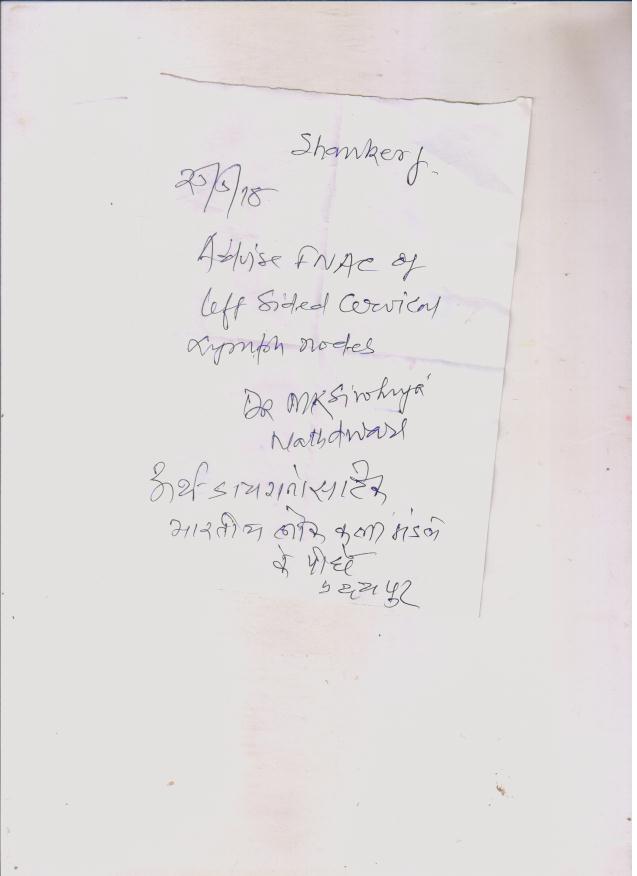 Shankerj.
Advise FNAC of
left Sided Cervical
Lymph nodes
Dr MK Sirohiya
Nathdwara
अर्थ डायग्नोसाटिक
भारतीय लोक कला मंडल
के पीछे
उदयपुर